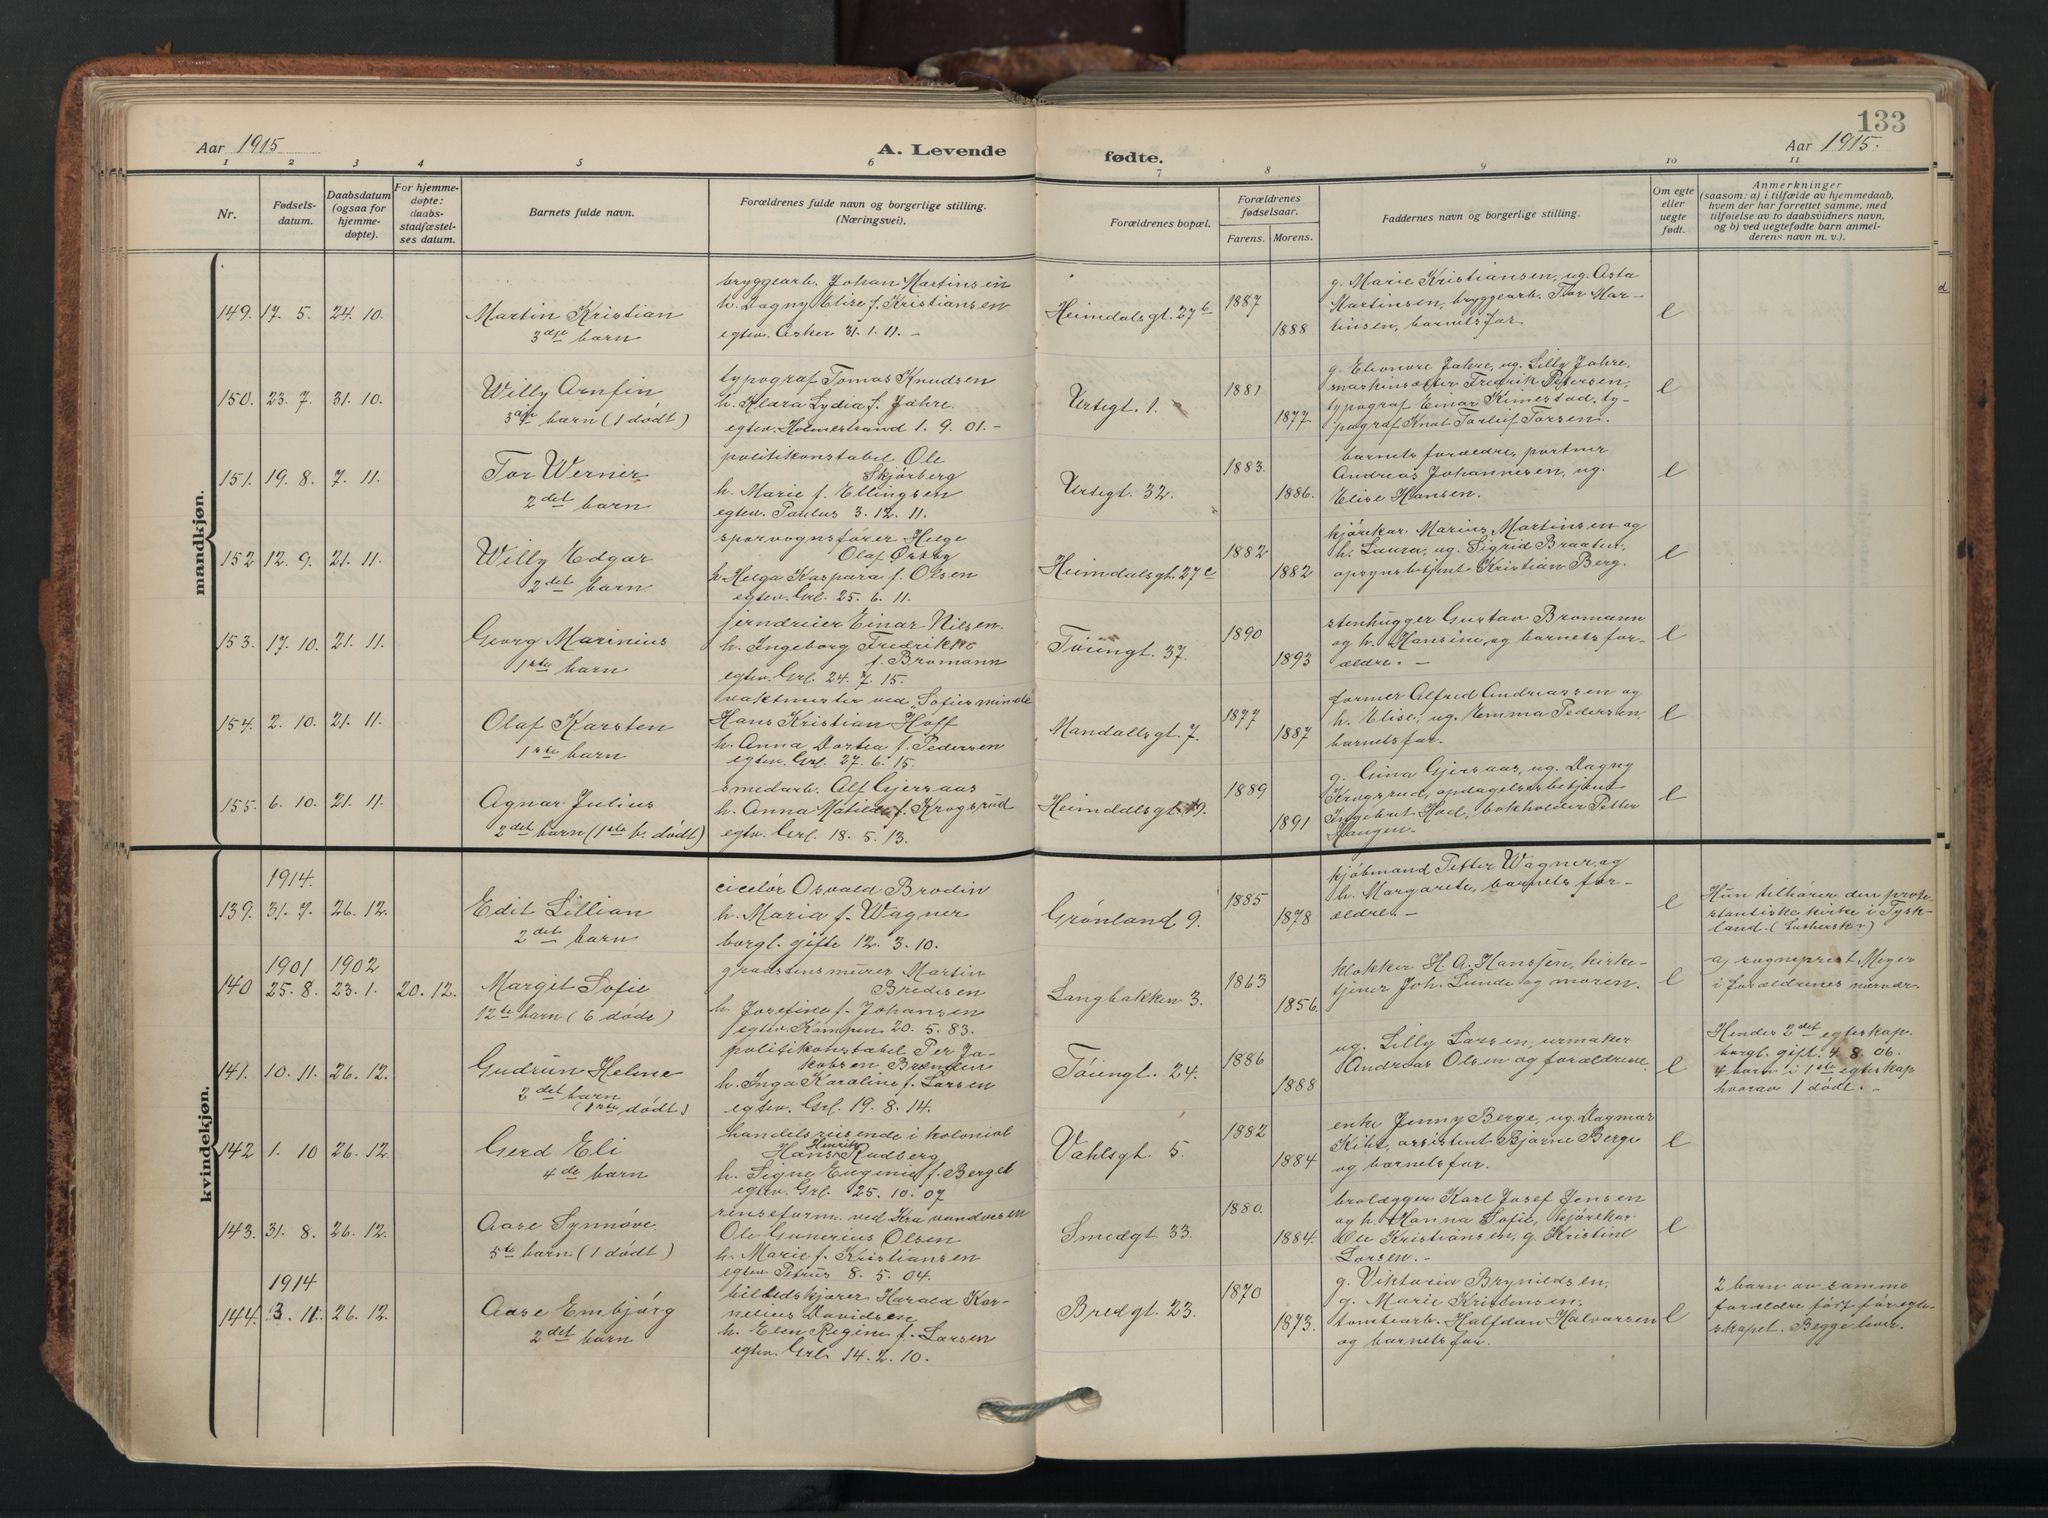 133
Aar 1915
A. Levende
fødte.
Aar 1915.
1 2 3 4 5 6 7 8 9 10 11
Nr.
Fødsels-
datum.
Daabsdatum
(ogsaa for
hjemme-
døpte).
For hjemme-
døpte:
daabs-
stadfæstel-
ses datum.
Barnets fulde navn.
Forældrenes fulde navn og borgerlige stilling.
(Næringsvei).
Forældrenes bopæl.
Forældrenes
fødselsaar.
Farens. Morens.
Faddernes navn og borgerlige stilling.
Om egte
eller
uegte
født.
Anmerkninger
(saasom: a) i tilfælde av hjemmedaab,
hvem der har forrettet samme, med
tilføielse av to daabsvidners navn,
og b) ved uegtefødte barn anmel-
derens navn m. v.).
mandkjøn.
149. 17. 5. 24. 10.
Martin Kristian
3dje barn
bryggearb. Johan Martinsen
h. Dagny Elise f. Kristiansen
egtev. Asker 31. 1. 11. -
Heimdalsgt. 27b
1887
1888
g. Marie Kristiansen, ug. Asta
Martinsen, bryggearb. Thor Mar-
tinsen, barnets far.
e
150. 23. 7. 31. 10.
Willy Arnfin
3dje barn (1 dödt)
typograf Tomas Knudsen
h. Klara Lydia f. Jahre.
egtev. Holmestrand 1. 9. 01. -
Urtegt. 1.
1881
1877
g. Eleonore Jahre, ug. Lilly Jahre,
maskinsætter Fredrik Petersen,
typograf Einar Kimestad, ty-
pograf Knut Torleif Torsen.
e
151. 19. 8. 7. 11.
Tor Werner
2det barn
politikonstabel Ole
Skjørberg
h. Marie f. Ellingsen
egtev. Paulus 3. 12. 11.
Urtegt. 32.
1883.
1886.
barnets forældre, portner
Andreas Johannesen, ug.
Elise Hansen.
e
152 12. 9. 21. 11.
Willy Edgar
2det barn.
sporvognsfører Helge
Olaf Østby
h. Helga Kaspara f. Olsen
egtev. Grl. 25. 6. 11.
Heimdalsgt. 27c
1882
1882
kjörekar. Marius Martinsen og
h. Laura, ug. Sigrid Braaten,
opsynsbetjent Kristian Berg.
e
153. 17. 10. 21. 11.
Georg Marinius
1ste barn
jerndreier Einar Nilsen.
h. Ingeborg Fredrikke
f. Bromann
egtev. Grl. 24. 7. 15.
Töiengt. 37.
1890
1893
stenhugger Gustav Bromann
og h. Hansine, og barnets for-
ældre. -
e
154. 2. 10. 21. 11.
Olaf Karsten
1ste barn
vaktmester ved „Sofies minde
Hans Kristian Holf
h. Anna Dortea f. Pedersen
egtev. Grl. 27. 6. 15.
Mandallsgt. 7.
1877
1887
former Alfred Andreassen og
h. Elise, ug. Emma Pedersen,
barnets far.
e
155. 6. 10. 21. 11.
Agnar Julius
2det barn (1ste b. dödt)
smedarb. Alf Gjersaas
h. Anna Matilde f. Krogsrud
egtev. Grl. 18. 5. 13.
Heimdalsgt. 19.
1889
1891
g. Gina Gjersaas, ug. Dagny
Krogsrud, opdagelsesbetjent
Ingebret Hod, bokholder Petter
Haugen.
e
kvindekjøn.
1914.
139. 31. 7. 26. 12.
Edit Lillian
2det barn
ciselör Osvald Brodin
h. Maria f. Wagner
borgl. gifte 12. 3. 10.
Grönland 9.
1885
1878
kjöbmand Petter Wagner og
h. Margarete, barnets for-
ældre. -
e
Hun tilhörer den prote-
stantiske kirke i Tysk-
land. (Luthersk)
1901 1902
140 25. 8. 23. 1. 20. 12.
Margit Sofie
12te barn (6 döde)
graastensmurer Martin
Bredesen
h. Josefine f. Johansen
egtev. Kampen 20. 5. 83.
Langbakken 3.
1863
1856.
klokker H. A. Hanssen, kirke-
tjener Joh. Lunde og moren.
e
af sogneprest Meyer
i forældrenes nærvær.
141. 10. 11. 26. 12.
Gudrun Helene
2det barn
(1ste dödt)
politikonstabel Per Ja-
kobsen Brænden
h. Inga Karoline f. Larsen
egtev. Grl. 19. 8. 14.
Töiengt. 24.
1886
1888
ug. Lilly Larsen, urmaker
Andreas Olsen og forældrene.
e
Hendes 2det egteskap.
borgl. gift. 4. 8. 06.
4 barn i 1ste egteskap
hvorav 1 dödt. -
142 1. 10 26. 12.
Gerd Eli
4de barn
handelsreisende i kolonial
Henrik
Hans Rudberg
h. Signe Eugenie f. Berge
egtev. Grl. 25. 10. 07
Vahlsgt. 5.
1882
1884
enke Jenny Berge, ug. Dagmar
assistent Bjarne Berge
og barnets far.
e
143. 31. 8. 26. 12.
Aase Synnöve.
5te barn (1 dödt)
renseform. ved Kra vandvesen
Ole Gunerius Olsen
h. Marie f. Kristiansen
egtev. Petrus 8. 5. 04.
Smedgt. 33.
1880.
1884.
brolægger Karl Josef Jensen
og h. Hanna Sofie, kjörekar
Ole Kristiansen, g. Kristine
Larsen. -
e
1914
144. 3. 11. 26. 12.
Aase Embjörg
2det barn
Harald Kor-
nelius Davidsen
h. Elen Regine f. Larsen
egtev. Grl. 14. 2. 10.
Bredgt. 23.
1870
1873.
g. Viktoria Brynildsen,
g. Marie Kristensen,
tomtearb. Halfdan Halvorsen
og barnets far.
e
2 barn av samme
forældre født før egte-
skapet. Begge lever.